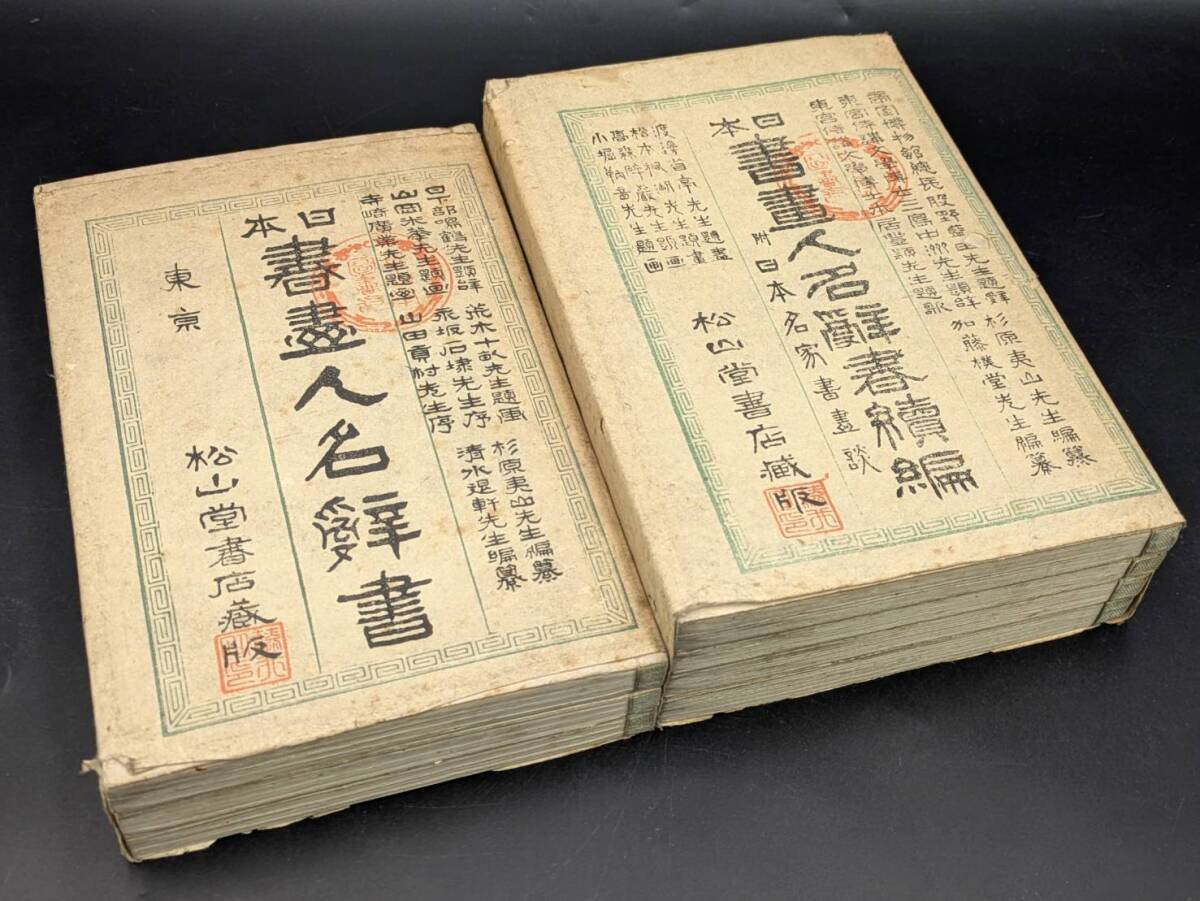 日下部鳴鶴先生題辞 荒木十畝先生題画 杉原夷山先生編纂
山岡米華先生題画 永坂石埭先生序 清水澄軒先生編纂
寺崎廣業先生題 山田 先生序
日本書畫人名辭書
東京 松山堂書店藏版
帝国博物館総長股野琢先生題辞 杉原夷山先生編纂
東宮侍講文學博士三島中洲先生題辞 加藤樸堂先生編纂
東宮侍講文學博士本居豊頴先生題歌
日本書畫人名辭書續編
附日本名家書畫談
渡邊省亭先生題畫
松本楓湖先生題画
高森砕巌先生題画
小堀鞆音先生題画
松山堂書店藏版